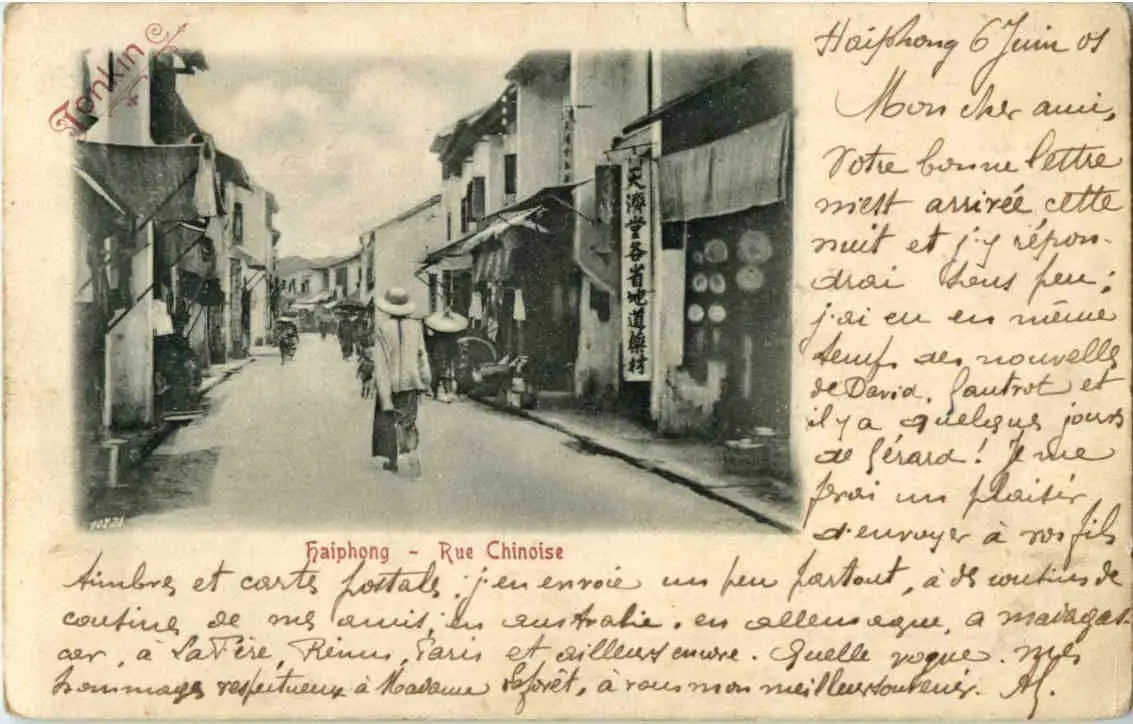 Tonkin
天濟堂各省地道藥材
10721
Haiphong - Rue Chinoise
Haiphong 6 Juin 01
Mon cher ami,
Votre bonne lettre
m'est arrivée cette
nuit et j'y répon-
drai sous peu;
j'ai eu en même
temps des nouvelles
de David, Gautrot et
il y a quelques jours
de Gérard! Je me
ferai un plaisir
d'envoyer à vos fils
timbres et cartes postales; j'en envoie un peu partout, à des cousins de
cousins, de mes amis, en australie, en allemagne, a madagas-
car, à La Fère, Reims, Paris et ailleurs encore. Quelle vogue. Mes
hommages respectueux à Madame Laforêt, à vous mon meilleur souvenir.